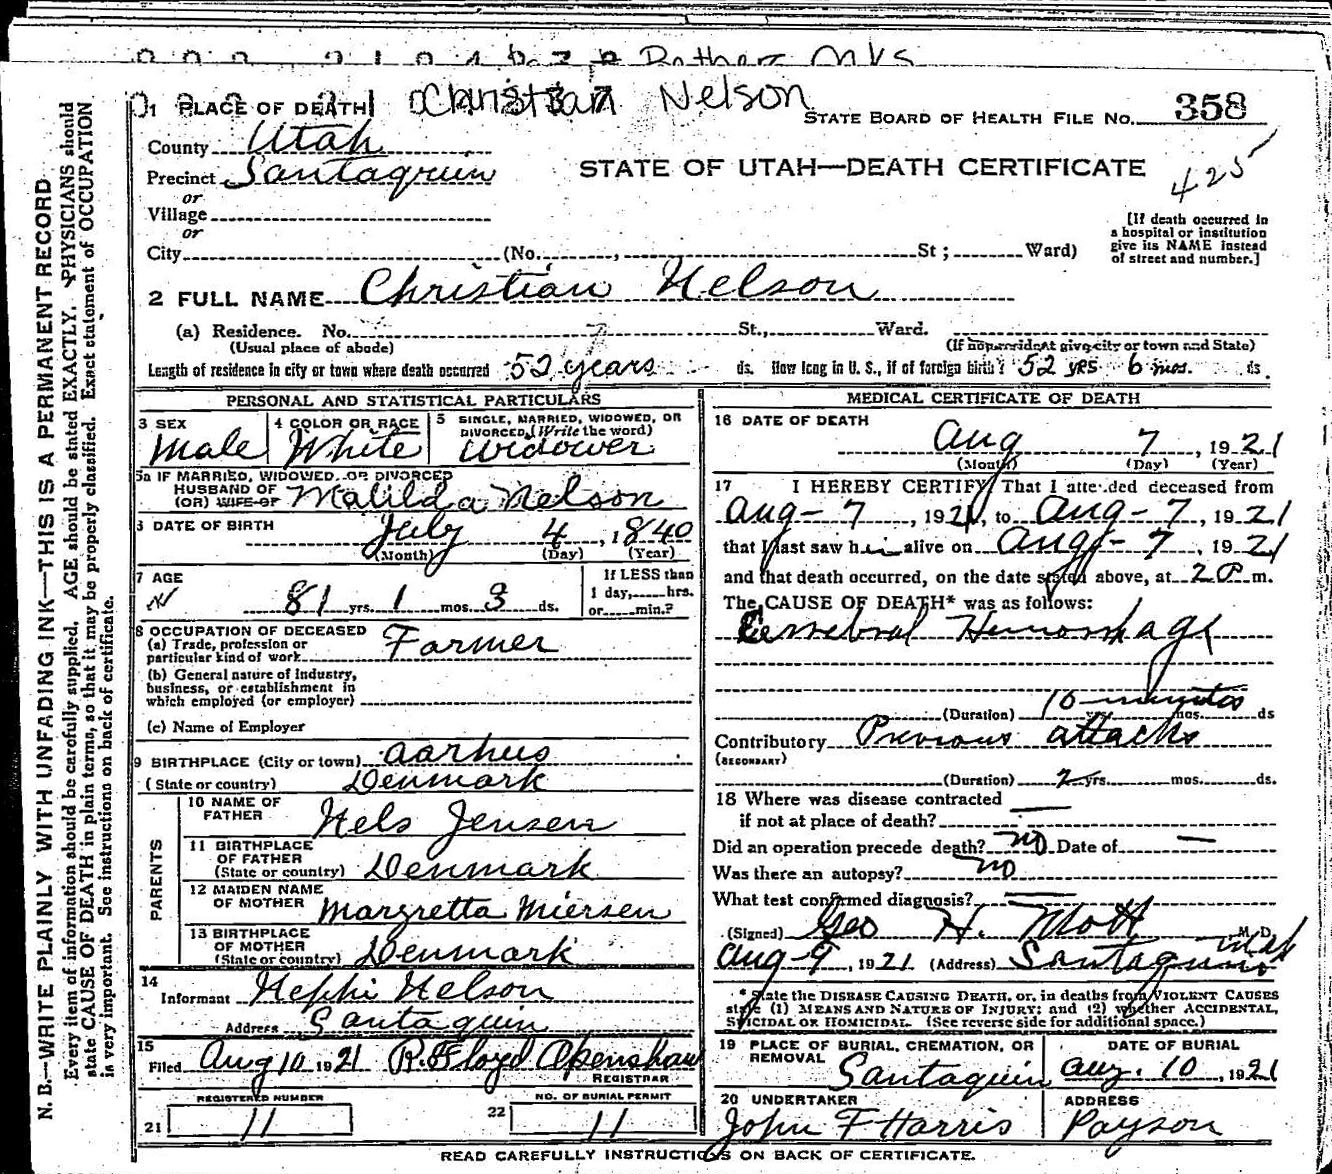 Christian Nelson
1 PLACE OF DEATH
STATE BOARD OF HEALTH FILE No. 358
County Utah
Precinct Santaquin
STATE OF UTAH—DEATH CERTIFICATE
425
or
Village
or
City (No. , St ; Ward)
[If death occurred in
a hospital or institution
give its NAME instead
of street and number.]
2 FULL NAME Christian Nelson
(a) Residence. No. St., Ward.
(Usual place of abode) (If nonresident give city or town and State)
Length of residence in city or town where death occurred 52 years ds. How long in U. S., if of foreign birth? 52 yrs 6 mos. ds.
PERSONAL AND STATISTICAL PARTICULARS
3 SEX Male
4 COLOR OR RACE White
5 SINGLE, MARRIED, WIDOWED, OR
DIVORCED (Write the word)
Widower
5a IF MARRIED, WIDOWED, OR DIVORCED
HUSBAND OF
(OR) WIFE OF Matilda Nelson
6 DATE OF BIRTH July 4, 1840
(Month) (Day) (Year)
7 AGE
81 yrs. 1 mos. 3 ds.
If LESS than
1 day, hrs.
or min.?
8 OCCUPATION OF DECEASED
(a) Trade, profession or
particular kind of work Farmer
(b) General nature of industry,
business, or establishment in
which employed (or employer)
(c) Name of Employer
9 BIRTHPLACE (City or town) Aarhus
(State or country) Denmark
PARENTS
10 NAME OF
FATHER Nels Jensen
11 BIRTHPLACE
OF FATHER
(State or country) Denmark
12 MAIDEN NAME
OF MOTHER Margretta Miersen
13 BIRTHPLACE
OF MOTHER
(State or country) Denmark
14
Informant Nephi Nelson
Address Santaquin
15
Filed Aug 10 1921 R. Floyd Openshaw
REGISTRAR
REGISTERED NUMBER
21 11
NO. OF BURIAL PERMIT
22 11
MEDICAL CERTIFICATE OF DEATH
16 DATE OF DEATH
Aug 7, 1921
(Month) (Day) (Year)
17 I HEREBY CERTIFY That I attended deceased from
Aug - 7, 1921, to Aug - 7, 1921
that I last saw him alive on Aug - 7, 1921
and that death occurred, on the date stated above, at 2 P m.
The CAUSE OF DEATH* was as follows:
Cerrebral Hemorrhage
(Duration) 10 minutes mos. ds
Contributory Previous attacks
(SECONDARY)
(Duration) 2 yrs. mos. ds.
18 Where was disease contracted
if not at place of death?
Did an operation precede death? no Date of —
Was there an autopsy? no
What test confirmed diagnosis?
(Signed) Geo H. Mott M. D.
Aug - 9, 1921 (Address) Santaquin Utah
* State the DISEASE CAUSING DEATH, or, in deaths from VIOLENT CAUSES
state (1) MEANS AND NATURE OF INJURY; and (2) whether ACCIDENTAL,
SUICIDAL OR HOMICIDAL. (See reverse side for additional space.)
19 PLACE OF BURIAL, CREMATION, OR
REMOVAL Santaquin
DATE OF BURIAL
Aug. 10, 1921
20 UNDERTAKER
John F Harris
ADDRESS
Payson
READ CAREFULLY INSTRUCTIONS ON BACK OF CERTIFICATE.
N. B.—WRITE PLAINLY WITH UNFADING INK—THIS IS A PERMANENT RECORD
Every item of information should be carefully supplied. AGE should be stated EXACTLY. PHYSICIANS should
state CAUSE OF DEATH in plain terms, so that it may be properly classified. Exact statement of OCCUPATION
is very important. See instructions on back of certificate.